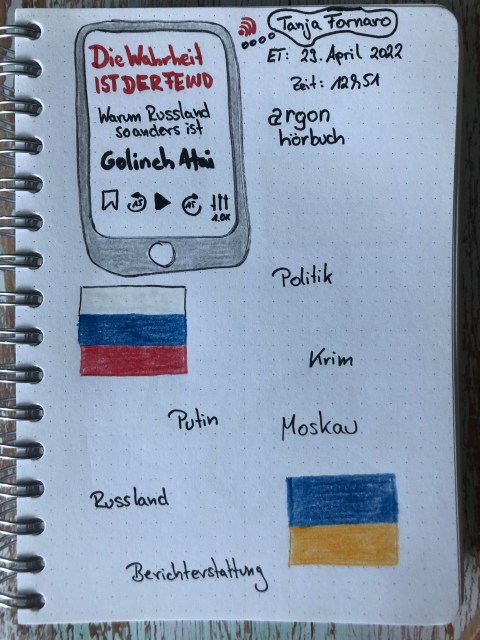 Die Wahrheit
IST DER FEIND
Warum Russland
so anders ist
Golineh Atai
15
15
1.0x
Tanja Fornaro
ET: 29. April 2022
Zeit: 12h51
argon
hörbuch
Politik
Krim
Putin
Moskau
Russland
Berichterstattung